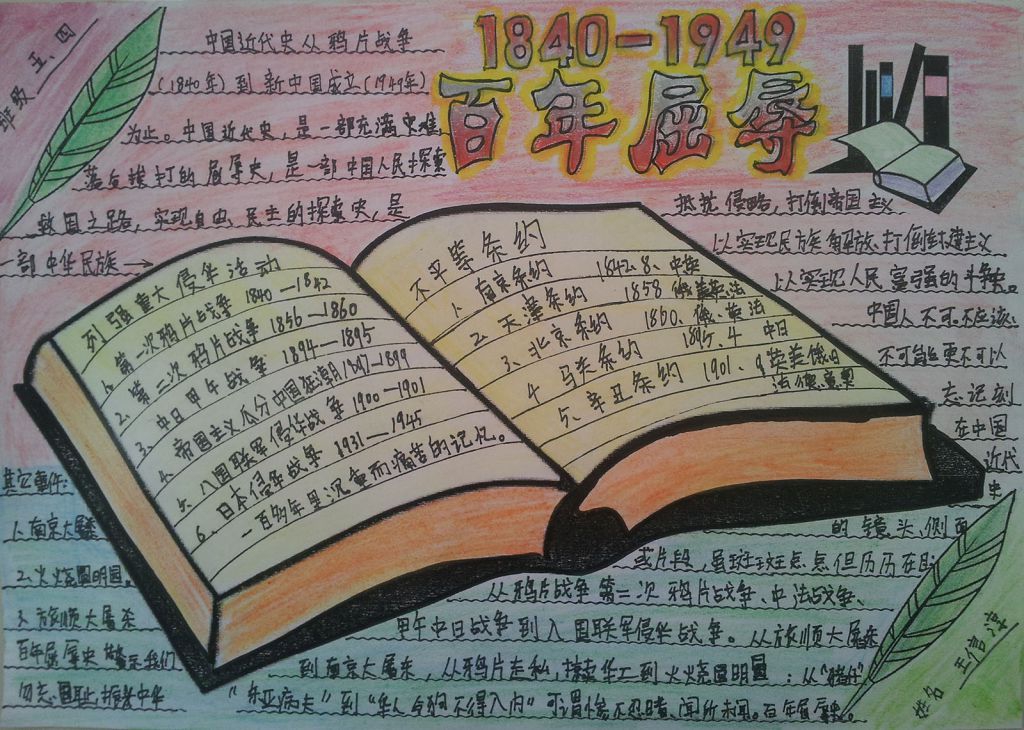 1840-1949
百年屈辱
班级 五、四
中国近代史从鸦片战争
(1840年)到新中国成立(1949年)
为止。中国近代史,是一部充满灾难、
落后挨打的屈辱史,是一部中国人民探索
救国之路,实现自由、民主的探索史,是
一部中华民族→
抵抗侵略,打倒帝国主义
以实现民族解放、打倒封建主义
以实现人民富强的斗争史。
中国人不可、不应该、
不可能更不可以
忘记刻
在中国
近代
史
的镜头、侧面
或片段,虽斑斑点点但历历在目
从鸦片战争第二次鸦片战争、中法战争、
甲午中日战争到八国联军侵华战争。从旅顺大屠杀
到南京大屠杀,从鸦片走私,掠卖华工到火烧圆明园:从
"东亚病夫"到"华人与狗不得入内"可谓惨不忍睹、闻所未闻。百年屈辱史。
列强重大侵华活动
1、第一次鸦片战争 1840—1842
2、第二次鸦片战争 1856—1860
3、中日甲午战争 1894—1895
4、帝国主义瓜分中国狂潮 1897—1899
5、八国联军侵华战争 1900—1901
6、日本侵华战争 1931—1945
一百多年里沉重而痛苦的记忆。
不平等条约
1、南京条约 1842、8、中英
2、天津条约 1858 俄美英法
3、北京条约 1860、俄、英法
4 马关条约 1895、4 中日
5、辛丑条约 1901、9 英美俄日
法德意奥
其它事件:
1、南京大屠杀
2、火烧圆明园。
3、旅顺大屠杀
百年屈辱史警示我们
勿忘国耻,振兴中华
姓名 王信淳